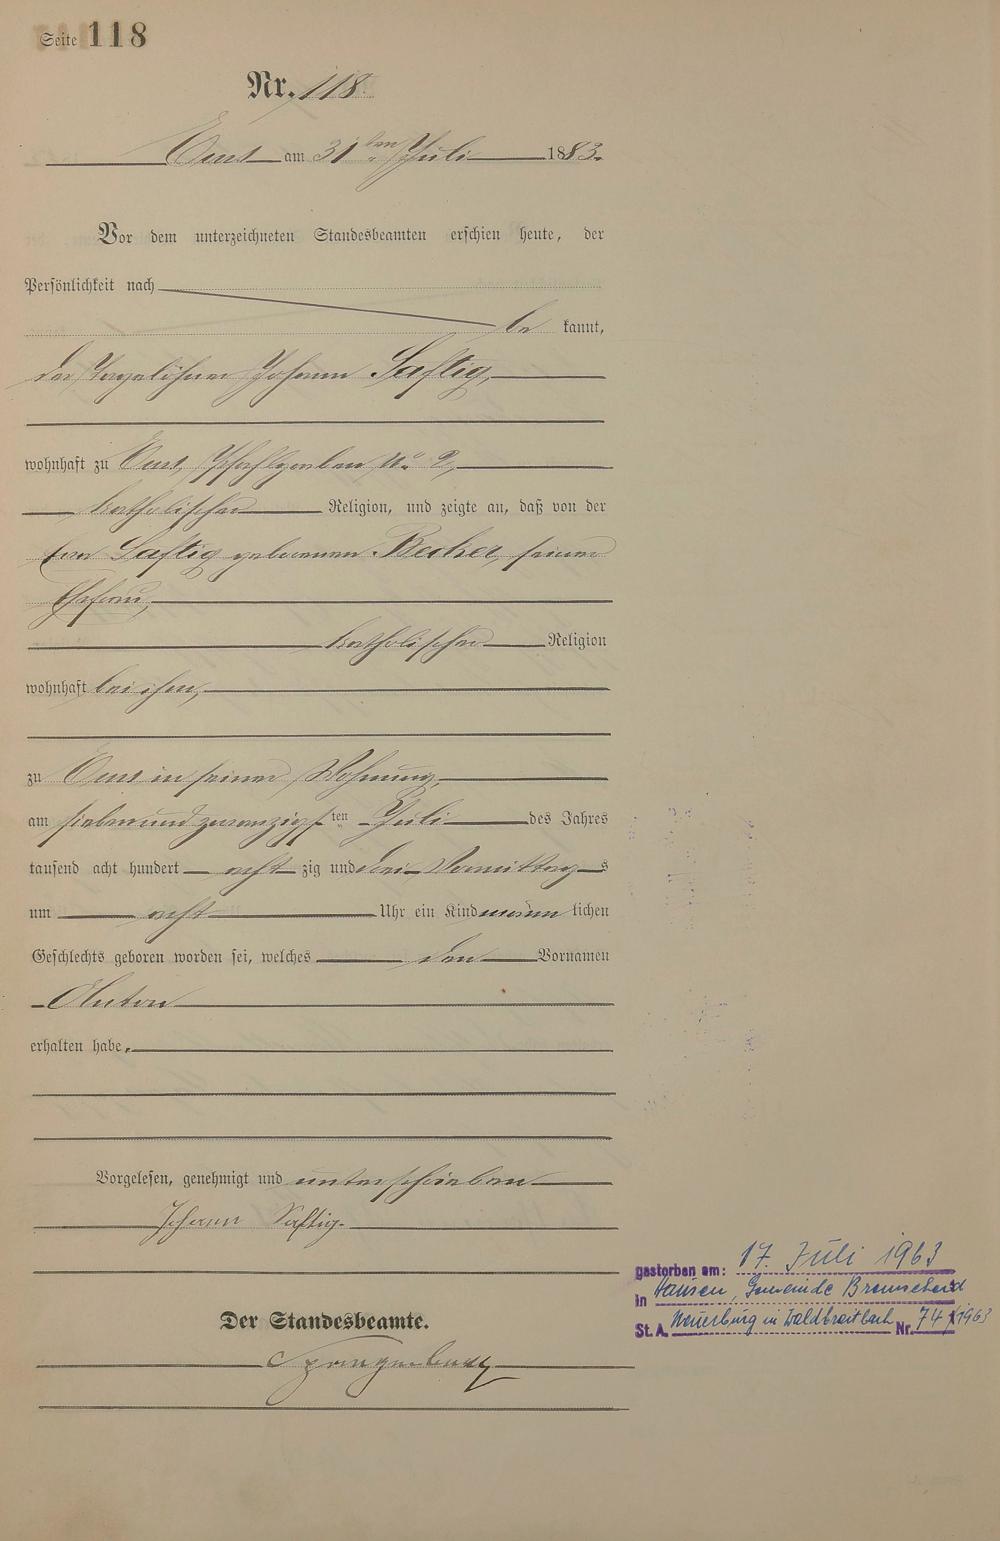 Seite 118
Nr. 118
Ems am 31ten Juli 1883.
Vor dem unterzeichneten Standesbeamten erschien heute, der
Persönlichkeit nach
be kannt,
der Tagelöhner Johann Saftig,
wohnhaft zu Ems, No 2,
katholischer Religion, und zeigte an, daß von der
Saftig geborenen Becker, seiner
Ehefrau,
katholischer Religion
wohnhaft bei ihm,
zu Ems in seiner Wohnung,
am siebenundzwanzigsten Juli des Jahres
tausend acht hundert acht zig und drei Vormittag s
um acht Uhr ein Kind männ lichen
Geschlechts geboren worden sei, welches den Vornamen
Anton
erhalten habe.
Vorgelesen, genehmigt und unterschrieben
Johann Saftig.
gestorben am: 17. Juli 1963
in Hausen, Gemeinde Bremscheid
St. A. Neuerburg in Waldbreitbach Nr. 74/1963
Der Standesbeamte.
Spangenberg